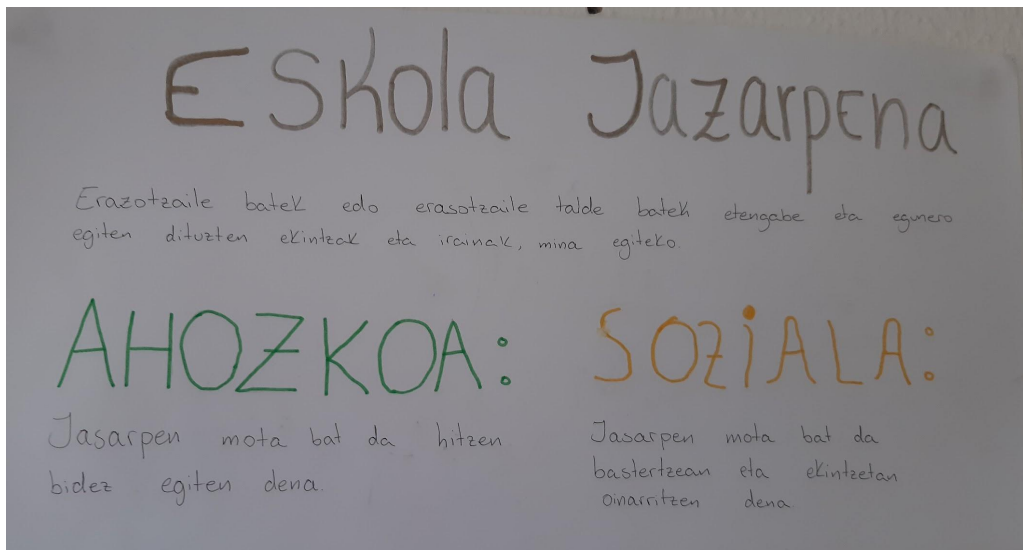 Eskola Jazarpena
Erazotzaile batek edo erasotzaile talde batek etengabe eta egunero
egiten dituzten ekintzak eta irainak, mina egiteko.
AHOZKOA:
Jasarpen mota bat da hitzen
bidez egiten dena.
SOZIALA:
Jasarpen mota bat da
bastertzean eta ekintzetan
oinarritzen dena